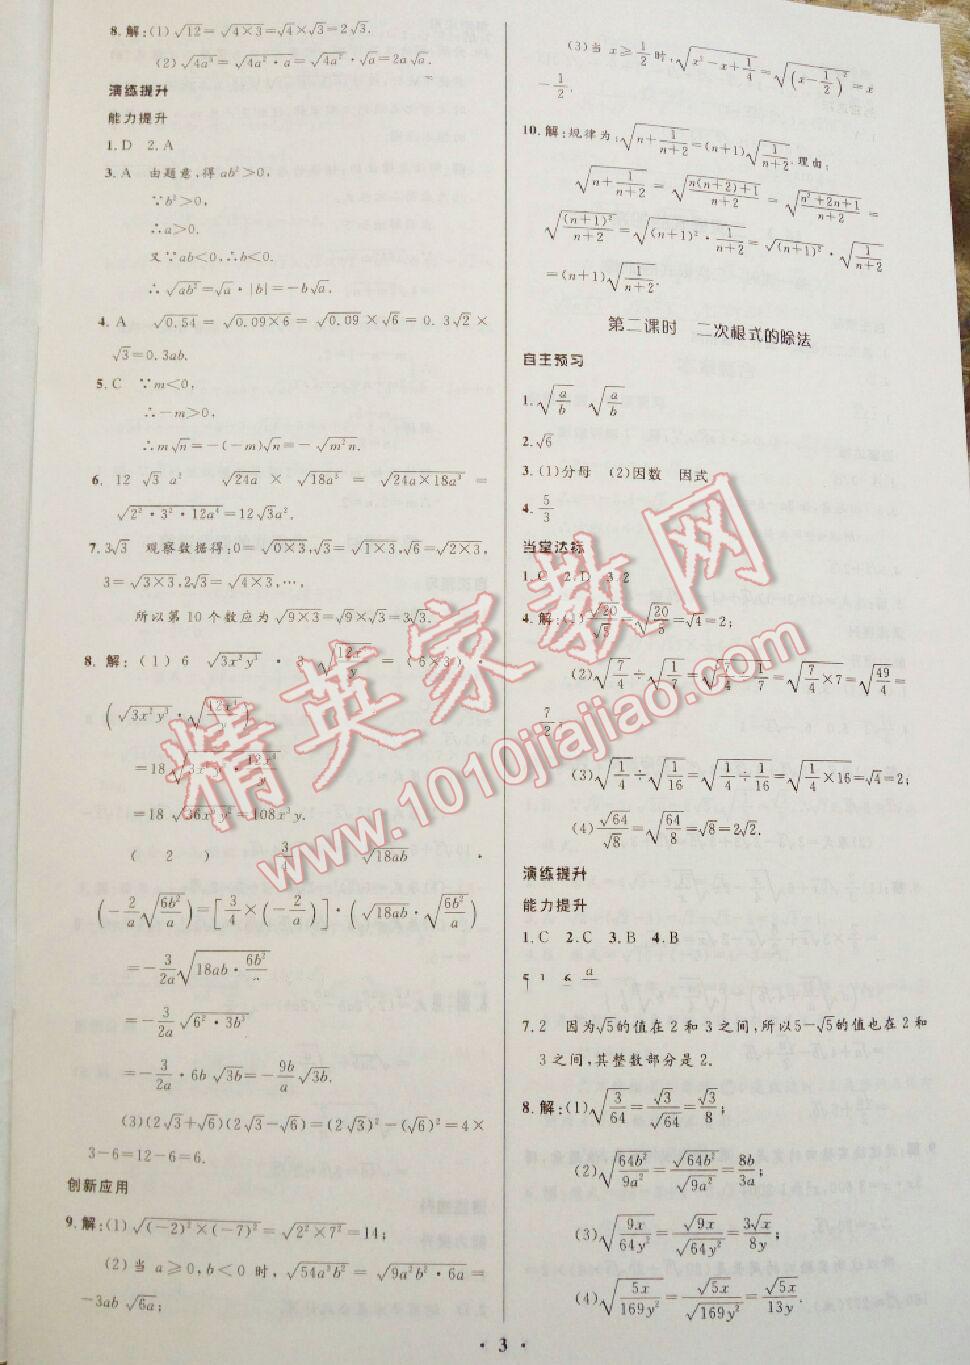 8.解:(1)√12=√(4×3)=√4×√3=2√3.
(2)√(4a³)=√(4a²·a)=√(4a²)·√a=2a√a.
演练提升
能力提升
1.D 2.A
3.A 由题意,得ab²>0,
∵b²>0,
∴a>0.
又∵ab<0,∴b<0.
∴√(ab²)=√a·|b|=-b√a.
4.A √0.54=√(0.09×6)=√0.09×√6=0.3√2×
√3=0.3ab.
5.C ∵m<0,
∴-m>0,
∴m√n=-(-m)√n=-√(m²n).
6. 12 √3 a² √24a × √(18a³) = √(24a×18a³) =
√(2²·3²·12a⁴)=12√3a².
7.3√3 观察数据得:0=√(0×3),√3=√(1×3),√6=√(2×3),
3=√(3×3),2√3=√(4×3),…,
所以第10个数应为√(9×3)=√9×√3=3√3.
8.解:(1)6 · 3 √(12x³/y) = (6×3) ·
=18
=18 =108x³y.
(2) 3/4 √18ab ·
(-2/a √(6b²/a))=[3/4×(-2/a)]·(√18ab·√(6b²/a))
=-3/2a √(18ab·6b²/a)
=-3/2a √(6²·3b³)
=-3/2a·6b√3b=-9b/a √3b.
(3)(2√3+√6)(2√3-√6)=(2√3)²-(√6)²=4×
3-6=12-6=6.
创新应用
9.解:(1)√((-2)²×(-7)²)=√(2²×7²)=14;
(2)当a≥0,b<0时,√(54a³b²)=√(9a²b²·6a)=
-3ab√6a;
(3)当x≥1/2时,√(x²-x+1/4)=√((x-1/2)²)=x
-1/2.
10.解:规律为:√(n+1/(n+2))=(n+1)√(1/(n+2)).理由:
√(n+1/(n+2))=√((n(n+2)+1)/(n+2))=√((n²+2n+1)/(n+2))=
√((n+1)²/(n+2))=√((n+1)²·1/(n+2))=√((n+1)²)·√(1/(n+2))
=(n+1)√(1/(n+2)).
第二课时 二次根式的除法
自主预习
1.√(a/b) √(a/b)
2.√6
3.(1)分母 (2)因数 因式
4.5/3
当堂达标
1.C 2.D 3.2
4.解:(1)√20/√5=√(20/5)=√4=2;
(2)√(7/4)÷√(1/7)=√(7/4÷1/7)=√(7/4×7)=√(49/4)=
7/2;
(3)√(1/4)÷√(1/16)=√(1/4÷1/16)=√(1/4×16)=√4=2;
(4)√64/√8=√(64/8)=√8=2√2.
演练提升
能力提升
1.C 2.C 3.B 4.B
7.2 因为√5的值在2和3之间,所以5-√5的值也在2和
3之间,其整数部分是2.
8.解:(1)√(3/64)=√3/√64=√3/8;
(2)√(64b²/9a²)=√(64b²)/√(9a²)=8b/3a;
(3)√(9x/64y²)=√9x/√(64y²)=3√x/8y;
(4)√(5x/169y²)=√5x/√(169y²)=√5x/13y.
·3·
精英家教网
www.1010jiajiao.com